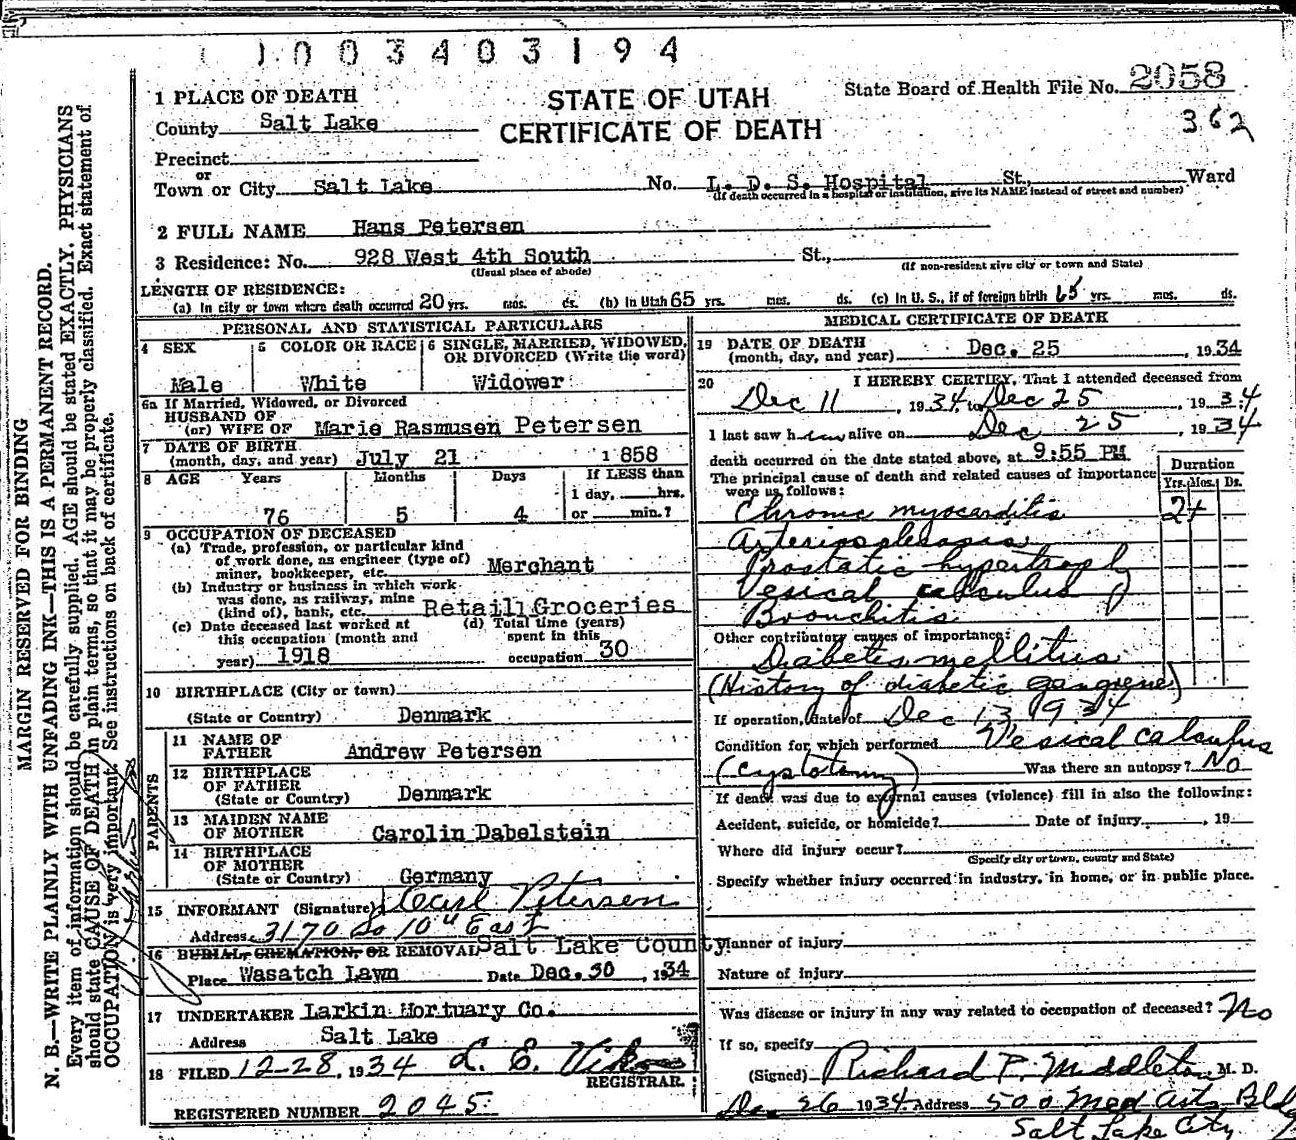 1003403194
STATE OF UTAH
CERTIFICATE OF DEATH
State Board of Health File No. 2058
362
1 PLACE OF DEATH
County Salt Lake
Precinct
or
Town or City Salt Lake No. L. D. S. Hospital St., Ward
(If death occurred in a hospital or institution, give its NAME instead of street and number)
2 FULL NAME Hans Petersen
3 Residence: No. 928 West 4th South St.,
(Usual place of abode) (If non-resident give city or town and State)
LENGTH OF RESIDENCE:
(a) In city or town where death occurred 20 yrs. mos. ds. (b) In Utah 65 yrs. mos. ds. (c) In U. S., if of foreign birth 65 yrs. mos. ds.
PERSONAL AND STATISTICAL PARTICULARS
4 SEX Male
5 COLOR OR RACE White
6 SINGLE, MARRIED, WIDOWED, OR DIVORCED (Write the word) Widower
6a If Married, Widowed, or Divorced
HUSBAND OF
(or) WIFE OF Marie Rasmusen Petersen
7 DATE OF BIRTH
(month, day, and year) July 21 1858
8 AGE Years Months Days If LESS than
1 day, hrs.
76 5 4 or min.?
9 OCCUPATION OF DECEASED
(a) Trade, profession, or particular kind
of work done, as engineer (type of)
miner, bookkeeper, etc. Merchant
(b) Industry or business in which work
was done, as railway, mine
(kind of), bank, etc. Retail Groceries
(c) Date deceased last worked at
this occupation (month and
year) 1918
(d) Total time (years)
spent in this
occupation 30
10 BIRTHPLACE (City or town)
(State or Country) Denmark
PARENTS
11 NAME OF
FATHER Andrew Petersen
12 BIRTHPLACE
OF FATHER
(State or Country) Denmark
13 MAIDEN NAME
OF MOTHER Carolin Dabelstein
14 BIRTHPLACE
OF MOTHER
(State or Country) Germany
15 INFORMANT (Signature) Carl Petersen
Address 3170 So 10th East
16 BURIAL, CREMATION, OR REMOVAL Salt Lake County
Place Wasatch Lawn Date Dec. 30, 1934
17 UNDERTAKER Larkin Mortuary Co.
Address Salt Lake
18 FILED 12-28, 1934 L. E.
REGISTRAR.
REGISTERED NUMBER 2045
MEDICAL CERTIFICATE OF DEATH
19 DATE OF DEATH
(month, day, and year) Dec. 25, 1934
20 I HEREBY CERTIFY, That I attended deceased from
Dec 11, 1934, to Dec 25, 1934
I last saw him alive on Dec 25, 1934
death occurred on the date stated above, at 9:55 PM
The principal cause of death and related causes of importance
were as follows:
Duration
Yrs. Mos. Ds.
Chronic myocarditis 2+
Arteriosclerosis
Prostatic hypertrophy
Vesical calculus
Bronchitis
Other contributory causes of importance:
Diabetes mellitus
(History of diabetic gangrene)
If operation, date of Dec 13 1934
Condition for which performed Vesical calculus
(Cystotomy) Was there an autopsy? No
If death was due to external causes (violence) fill in also the following:
Accident, suicide, or homicide? Date of injury, 19
Where did injury occur?
(Specify city or town, county and State)
Specify whether injury occurred in industry, in home, or in public place.
Manner of injury
Nature of injury
Was disease or injury in any way related to occupation of deceased? No
If so, specify
(Signed) Richard P. Middleton M. D.
Dec 26 1934 Address 500 Med Arts Bldg
Salt Lake City
MARGIN RESERVED FOR BINDING
N. B.—WRITE PLAINLY WITH UNFADING INK—THIS IS A PERMANENT RECORD.
Every item of information should be carefully supplied. AGE should be stated EXACTLY. PHYSICIANS
should state CAUSE OF DEATH in plain terms, so that it may be properly classified. Exact statement of
OCCUPATION is very important. See instructions on back of certificate.